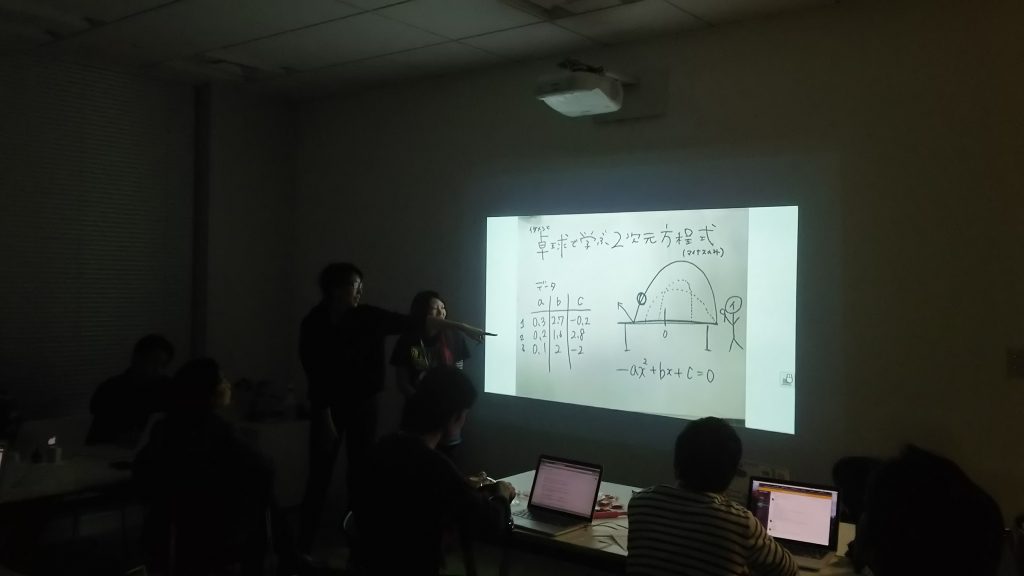 卓球で学ぶ2次元方程式
(マイナスのみ)
データ
a b c
1 0.3 2.7 -0.2
2 0.2 1.6 2.8
3 0.1 2 -2
0
1
-ax²+bx+c=0